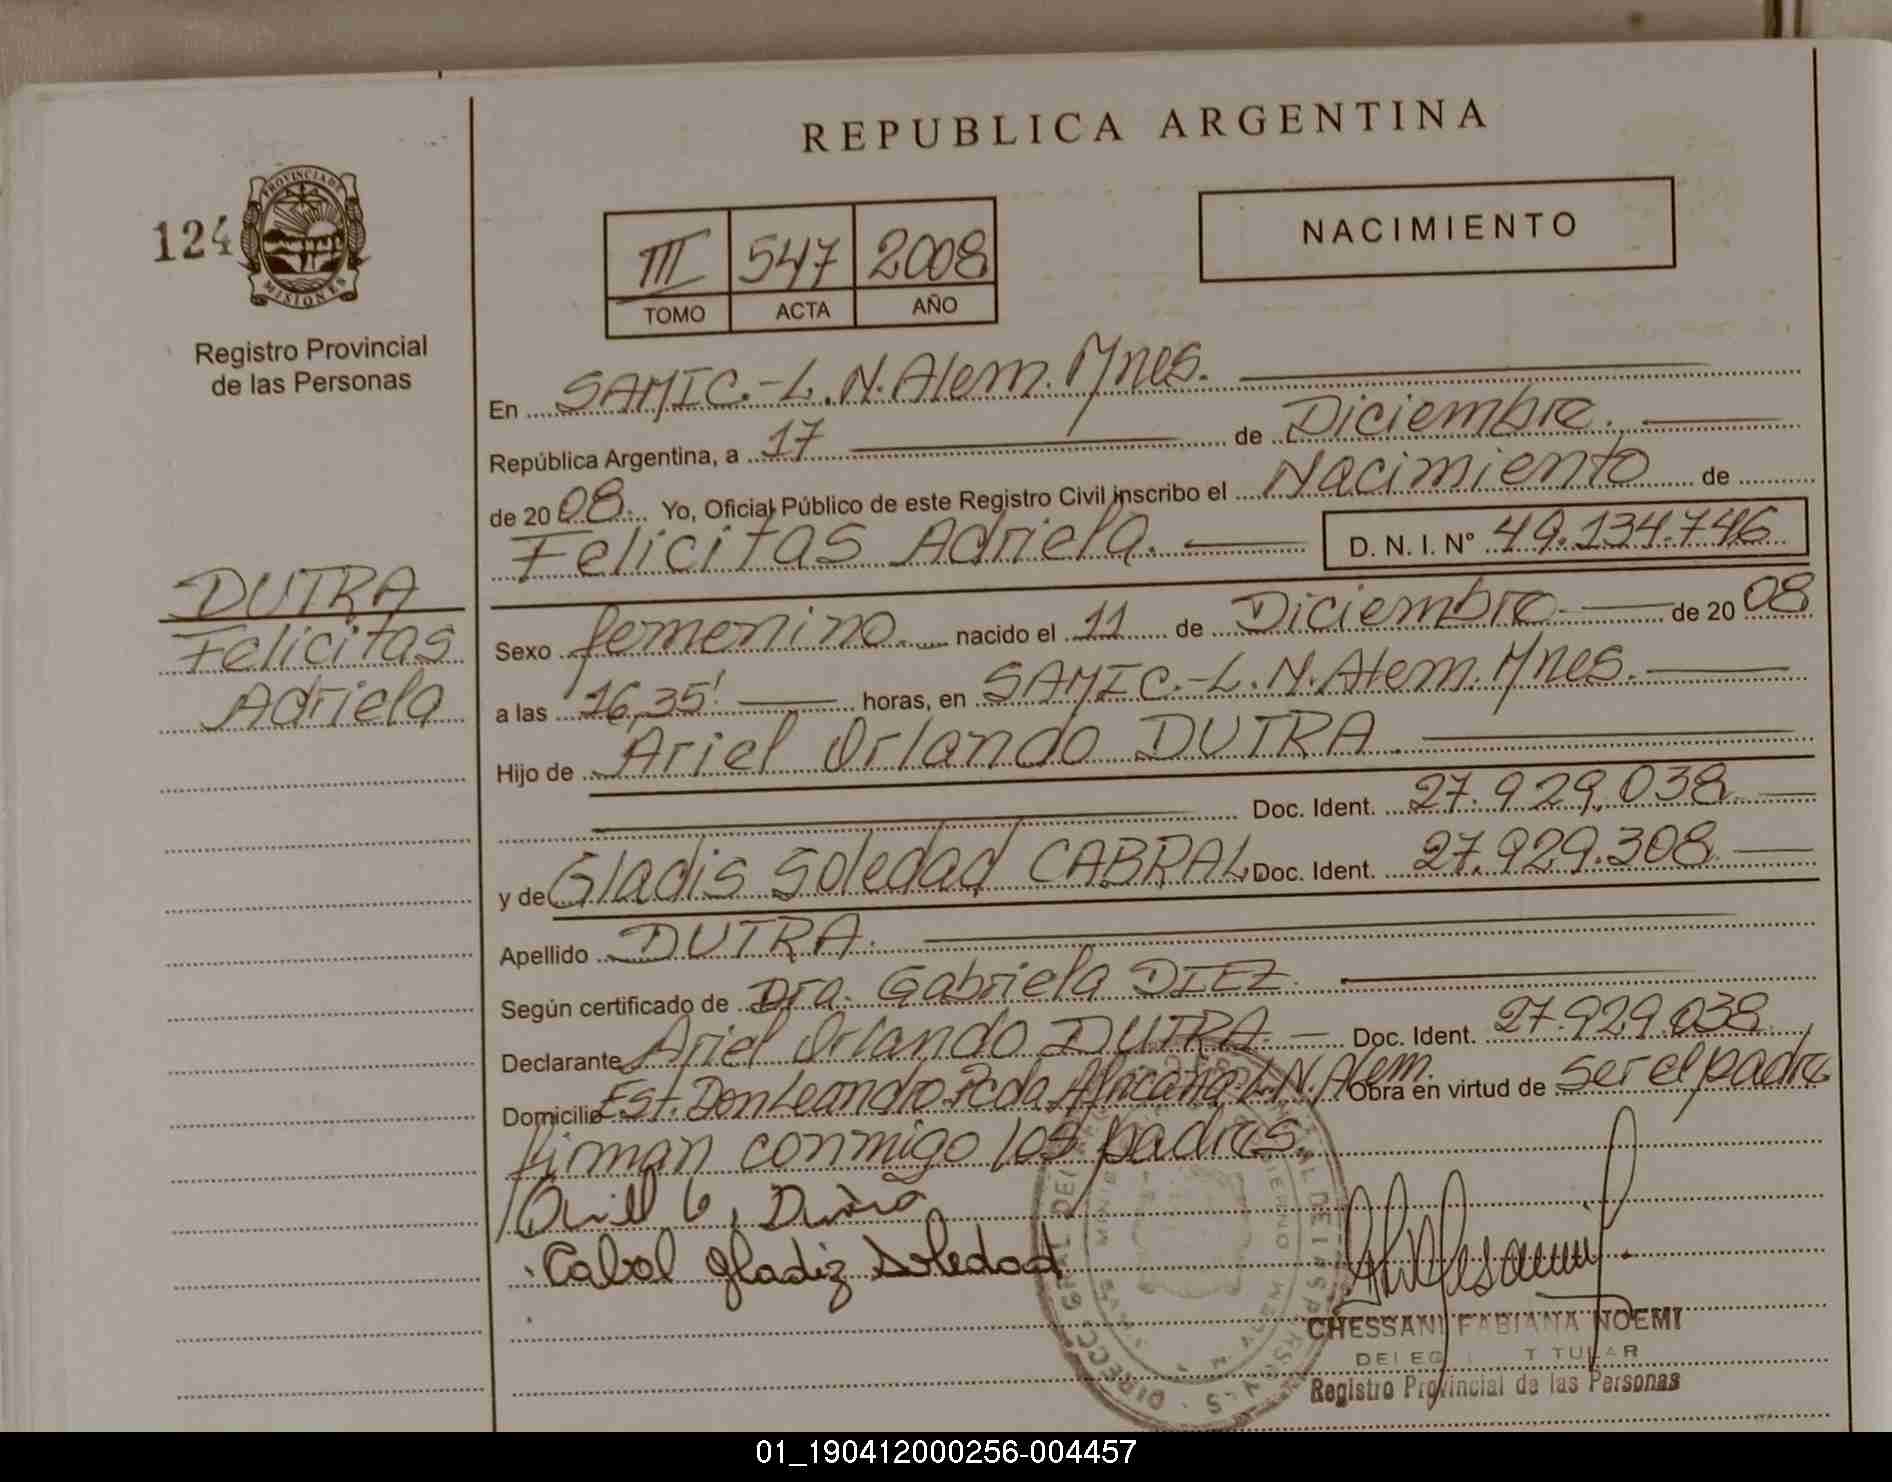 REPUBLICA ARGENTINA
124
PROVINCIA DE
MISIONES
Registro Provincial
de las Personas
III 547 2008
TOMO ACTA AÑO
NACIMIENTO
En SAMIC.-L.N.Alem.Mnes.
República Argentina, a 17 de Diciembre.
de 2008. Yo, Oficial Público de este Registro Civil inscribo el Nacimiento de
Felicitas Adriela. D. N. I. N° 49.134.746
DUTRA
Felicitas
Adriela
Sexo femenino. nacido el 11 de Diciembre. de 2008
a las 16,35' horas, en SAMIC.-L.N.Alem.Mnes.
Hijo de Ariel Orlando DUTRA.
Doc. Ident. 27.929.038
y de Gladis Soledad CABRAL Doc. Ident. 27.929.308
Apellido DUTRA.
Según certificado de Dra. Gabriela DIEZ.
Declarante Ariel Orlando DUTRA. Doc. Ident. 27.929.038
Domicilio Est. Don Leandro Pcda Africana-L.N.Alem. Obra en virtud de ser el padre
firman conmigo los padres.
Cabal gladiz Soledad
CHESSANI FABIANA NOEMI
DELEG TITULAR
Registro Provincial de las Personas
01_190412000256-004457